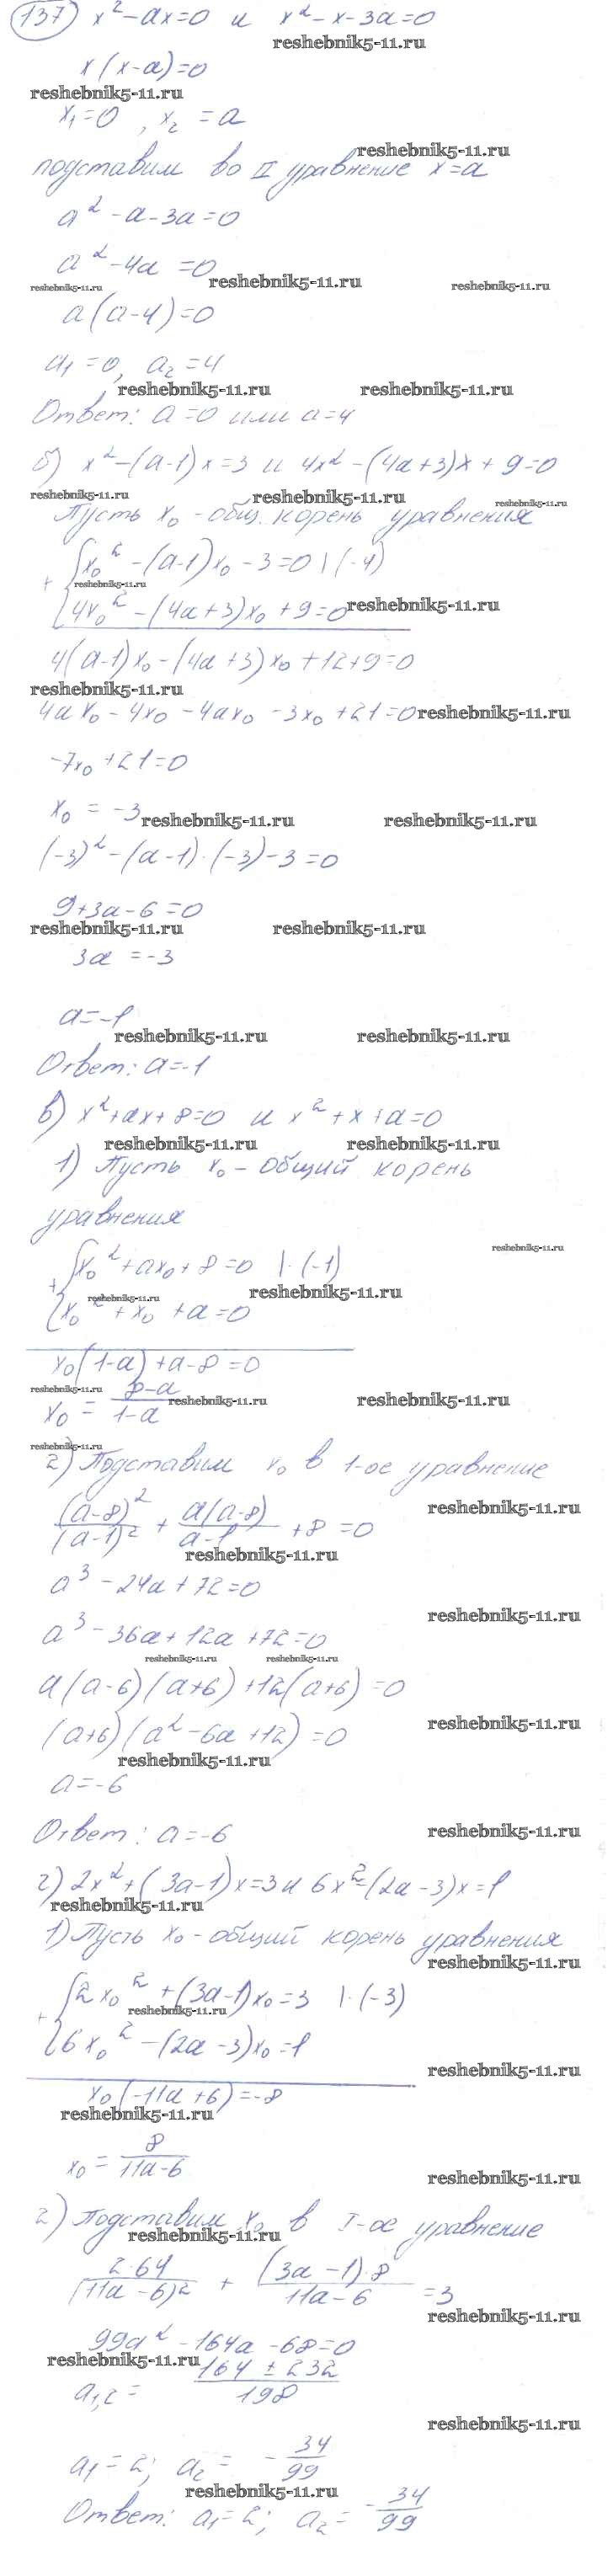 137) x² - ax = 0 и x² - x - 3a = 0
reshebnik5-11.ru
x(x-a) = 0
reshebnik5-11.ru
x₁ = 0, x₂ = a
reshebnik5-11.ru
подставим во II уравнение x = a
a² - a - 3a = 0
a² - 4a = 0
reshebnik5-11.ru reshebnik5-11.ru reshebnik5-11.ru
a(a-4) = 0
a₁ = 0, a₂ = 4
reshebnik5-11.ru reshebnik5-11.ru
Ответ: a = 0 или a = 4
б) x² - (a-1)x = 3 и 4x² - (4a+3)x + 9 = 0
reshebnik5-11.ru reshebnik5-11.ru reshebnik5-11.ru
Пусть x₀ - общ. корень уравнения
+ { x₀² - (a-1)x₀ - 3 = 0 | (-4)
reshebnik5-11.ru
4x₀² - (4a+3)x₀ + 9 = 0
reshebnik5-11.ru
4(a-1)x₀ - (4a+3)x₀ + 12 + 9 = 0
reshebnik5-11.ru
4ax₀ - 4x₀ - 4ax₀ - 3x₀ + 21 = 0
reshebnik5-11.ru
-7x₀ + 21 = 0
x₀ = -3
reshebnik5-11.ru reshebnik5-11.ru
(-3)² - (a-1)·(-3) - 3 = 0
9 + 3a - 6 = 0
reshebnik5-11.ru reshebnik5-11.ru
3a = -3
a = -1
reshebnik5-11.ru reshebnik5-11.ru
Ответ: a = -1
в) x² + ax + 8 = 0 и x² + x + a = 0
reshebnik5-11.ru reshebnik5-11.ru
1) Пусть x₀ - общий корень
уравнения
reshebnik5-11.ru
+ { x₀² + ax₀ + 8 = 0 | ·(-1)
reshebnik5-11.ru reshebnik5-11.ru
x₀² + x₀ + a = 0
x₀(1-a) + a - 8 = 0
reshebnik5-11.ru
x₀ = (8-a)/(1-a)
reshebnik5-11.ru reshebnik5-11.ru
reshebnik5-11.ru
2) Подставим x₀ в 1-ое уравнение
reshebnik5-11.ru
(a-8)²/(a-1)² + a(a-8)/(a-1) + 8 = 0
reshebnik5-11.ru
a³ - 24a + 72 = 0
reshebnik5-11.ru
a³ - 36a + 12a + 72 = 0
reshebnik5-11.ru reshebnik5-11.ru
a(a-6)(a+6) + 12(a+6) = 0
reshebnik5-11.ru
(a+6)(a² - 6a + 12) = 0
reshebnik5-11.ru
a = -6
Ответ: a = -6
reshebnik5-11.ru
г) 2x² + (3a-1)x = 3 и 6x² - (2a-3)x = 1
reshebnik5-11.ru
1) Пусть x₀ - общий корень уравнения
reshebnik5-11.ru
+ { 2x₀² + (3a-1)x₀ = 3 | ·(-3)
reshebnik5-11.ru
6x₀² - (2a-3)x₀ = 1
reshebnik5-11.ru
x₀(-11a+6) = -8
reshebnik5-11.ru
x₀ = 8/(11a-6)
reshebnik5-11.ru
2) Подставим x₀ в I-ое уравнение
reshebnik5-11.ru
2·64/(11a-6)² + (3a-1)·8/(11a-6) = 3
reshebnik5-11.ru
99a² - 164a - 68 = 0
reshebnik5-11.ru
a₁,₂ = (164 ± 232)/198
reshebnik5-11.ru
a₁ = 2; a₂ = -34/99
reshebnik5-11.ru
Ответ: a₁ = 2; a₂ = -34/99